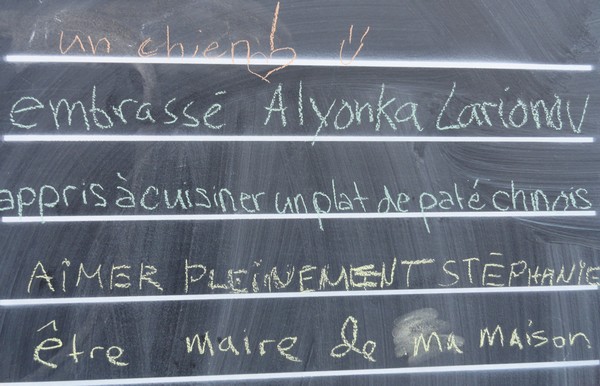 un chien
embrassé Alyonka Larionov
appris à cuisiner un plat de paté chinois
AIMER PLEINEMENT STÉPHANIE
être maire de ma maison